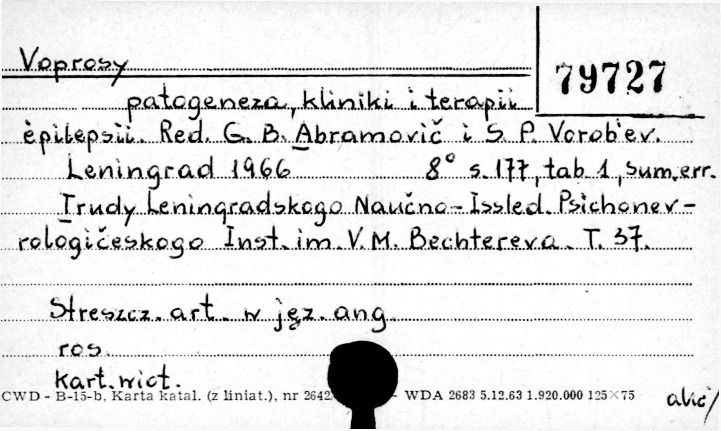 Voprosy
79727
patogeneza, kliniki i terapii
èpilepsii. Red. G. B. Abramovič i S. P. Vorob'ev.
Leningrad 1966 8° s. 177, tab 1, sum, err.
Trudy Leningradskogo Naučno-Issled. Psichonev-
rologičeskogo Inst. im. V. M. Bechtereva. T. 37.
Streszcz. art. w jęz. ang.
ros.
kart. wiot.
CWD - B-15-b, Karta katal. (z liniat.), nr 2642 - WDA 2683 5.12.63 1.920.000 125×75